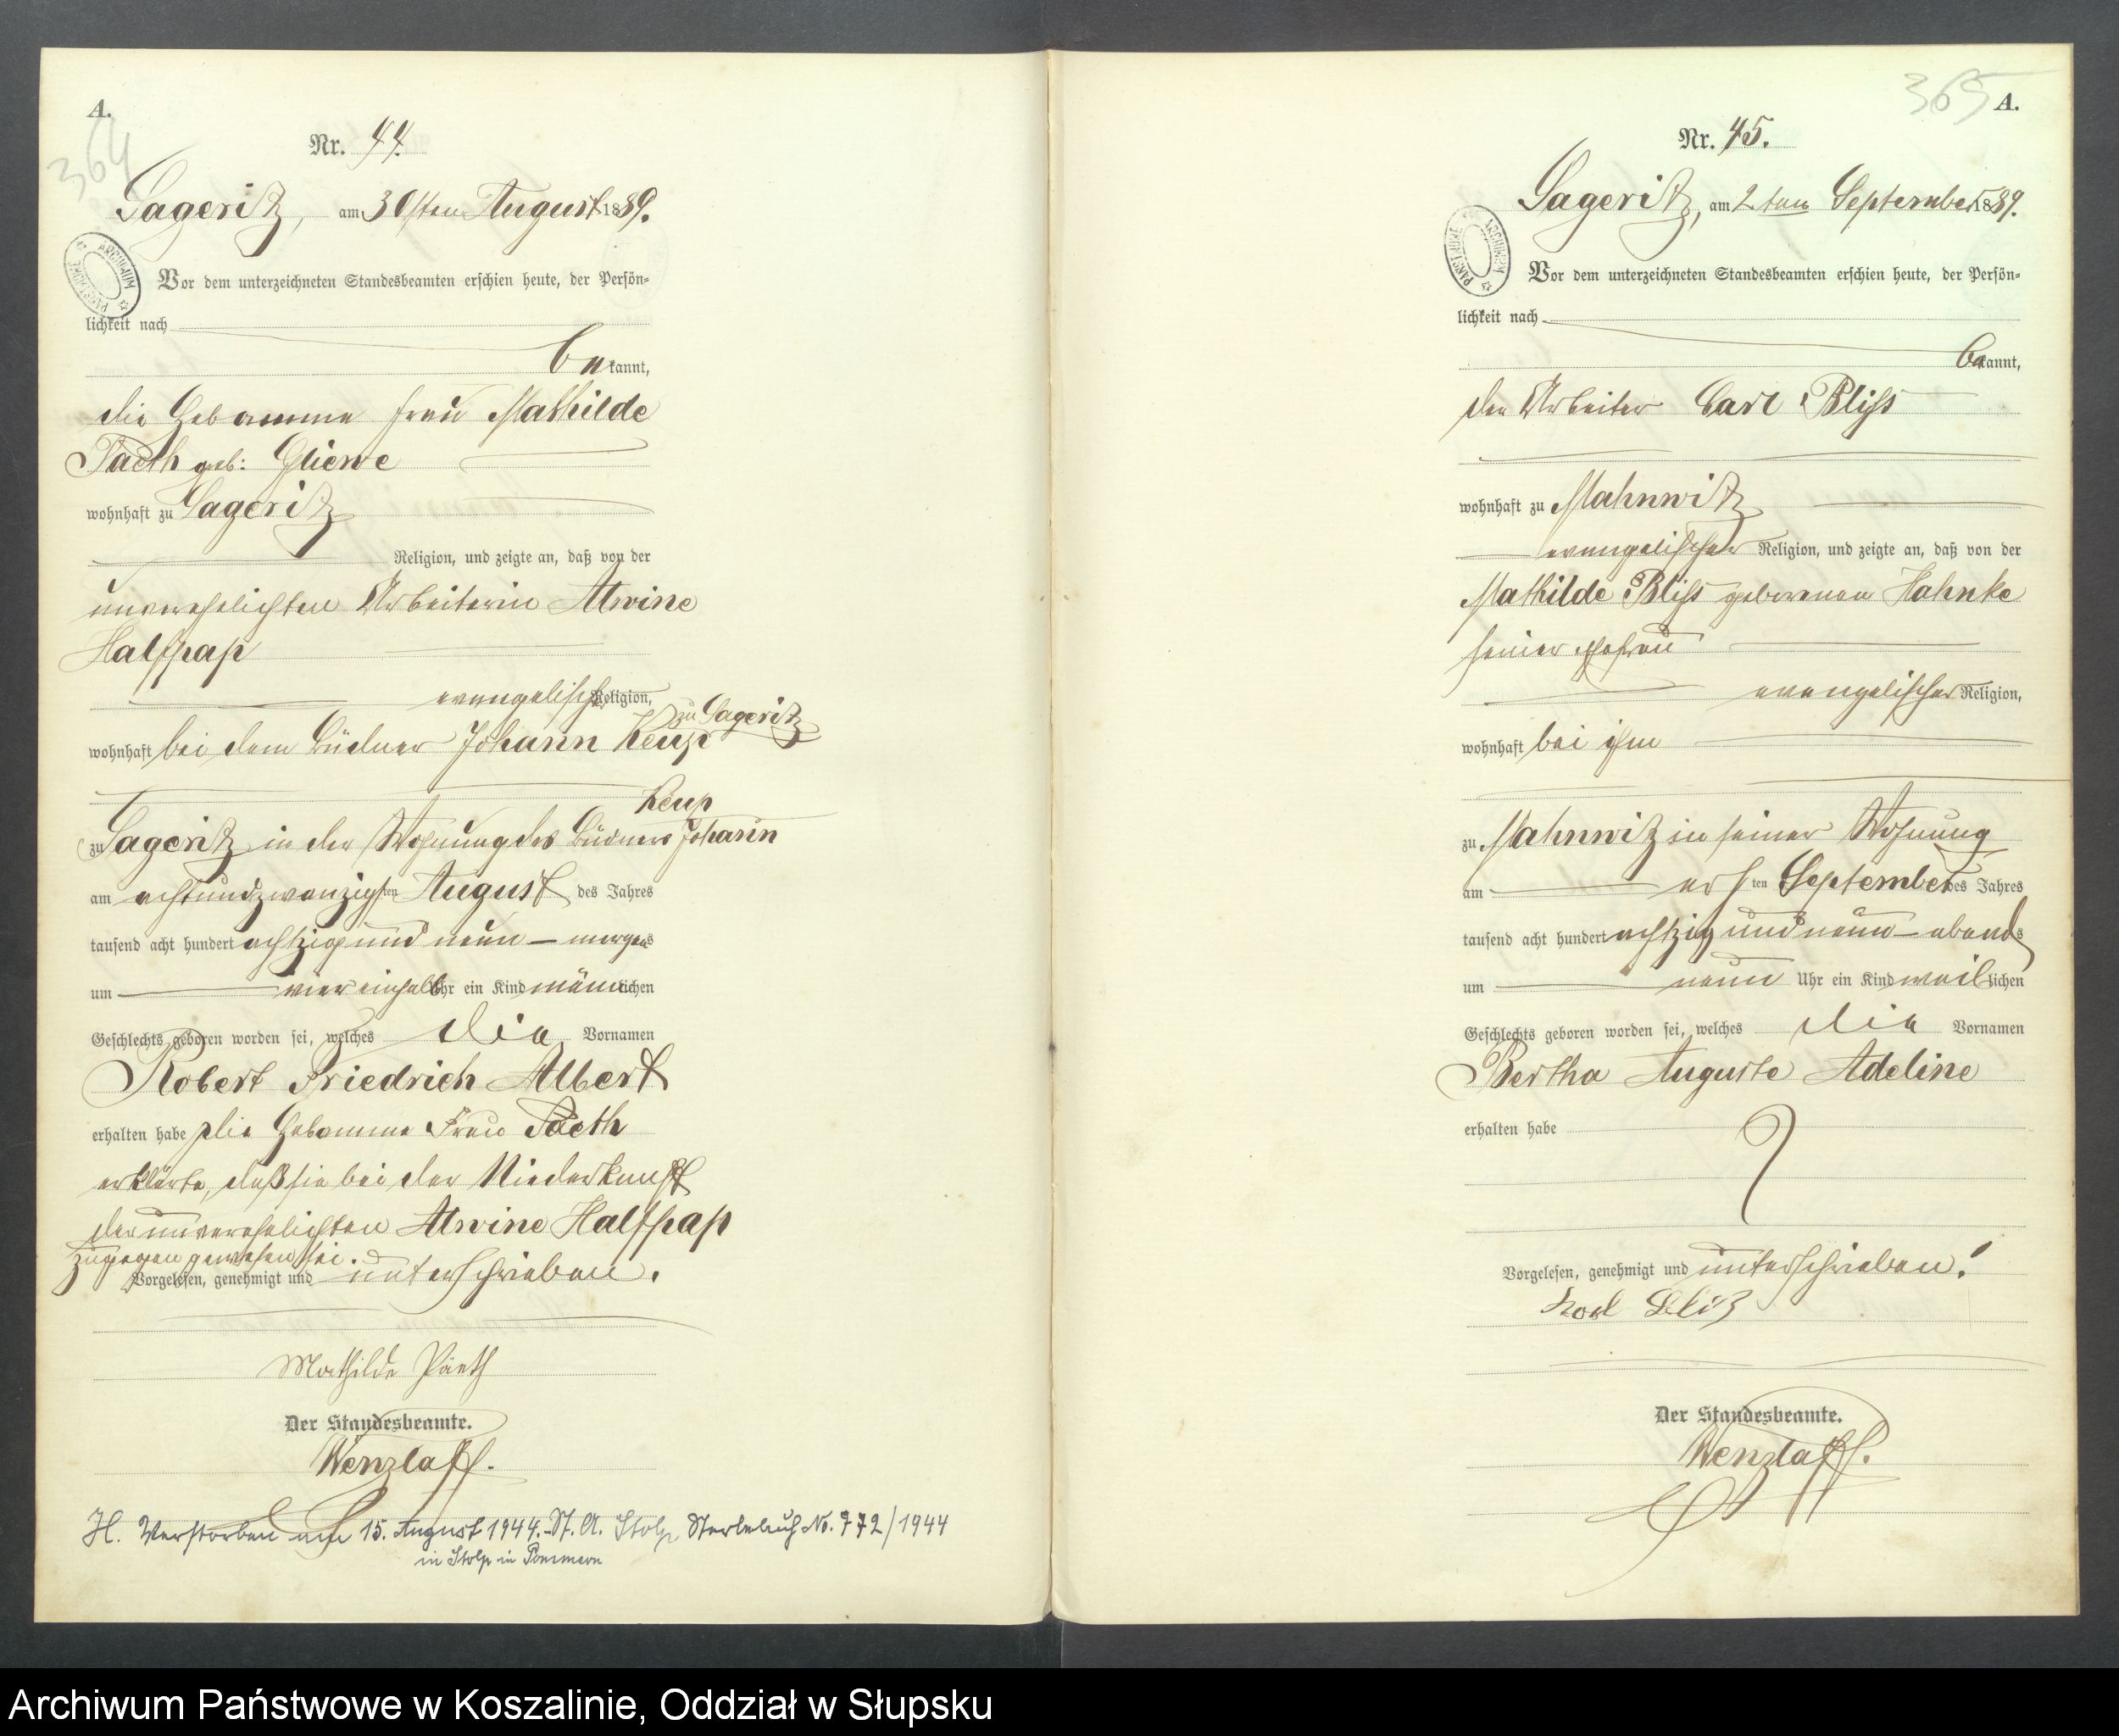 A.
364
Nr. 44.
Sageritz, am 30sten August 1889.
ARCHIWUM PAŃSTWOWE
Vor dem unterzeichneten Standesbeamten erschien heute, der Persön-
lichkeit nach
bekannt,
die Hebamme Frau Mathilde
Paeth geb: Gliewe
wohnhaft zu Sageritz
Religion, und zeigte an, daß von der
unverehelichten Arbeiterin Alwine
Halfpap
evangelischer Religion,
zu Sageritz
wohnhaft bei dem Büdner Johann Keup
Keup
zu Sageritz in der Wohnung des Büdners Johann
am achtundzwanzigsten August des Jahres
tausend acht hundert achtzig und neun – morgens
um vier einhalb Uhr ein Kind männlichen
Geschlechts geboren worden sei, welches die Vornamen
Robert Friedrich Albert
erhalten habe die Hebamme Frau Paeth
erklärte, daß sie bei der Niederkunft
der unverehelichten Alwine Halfpap
zugegen gewesen sei.
Vorgelesen, genehmigt und unterschrieben.
Mathilde Päeth
Der Standesbeamte.
Wenzlaff.
H. Verstorben am 15. August 1944. St. A. Stolp Sterbebuch No. 772/1944
in Stolp in Pommern
365
A.
Nr. 45.
Sageritz, am 2ten September 1889.
ARCHIWUM PAŃSTWOWE
Vor dem unterzeichneten Standesbeamten erschien heute, der Persön-
lichkeit nach
bekannt,
der Arbeiter Carl Bliss
wohnhaft zu Mahnwitz
evangelischer Religion, und zeigte an, daß von der
Mathilde Bliss geborenen Hahnke
seiner Ehefrau
evangelischer Religion,
wohnhaft bei ihm
zu Mahnwitz in seiner Wohnung
am ersten September des Jahres
tausend acht hundert achtzig und neun – abends
um neun Uhr ein Kind weiblichen
Geschlechts geboren worden sei, welches die Vornamen
Bertha Auguste Adeline
erhalten habe
Vorgelesen, genehmigt und unterschrieben.
Karl Bliß
Der Standesbeamte.
Wenzlaff.
Archiwum Państwowe w Koszalinie, Oddział w Słupsku